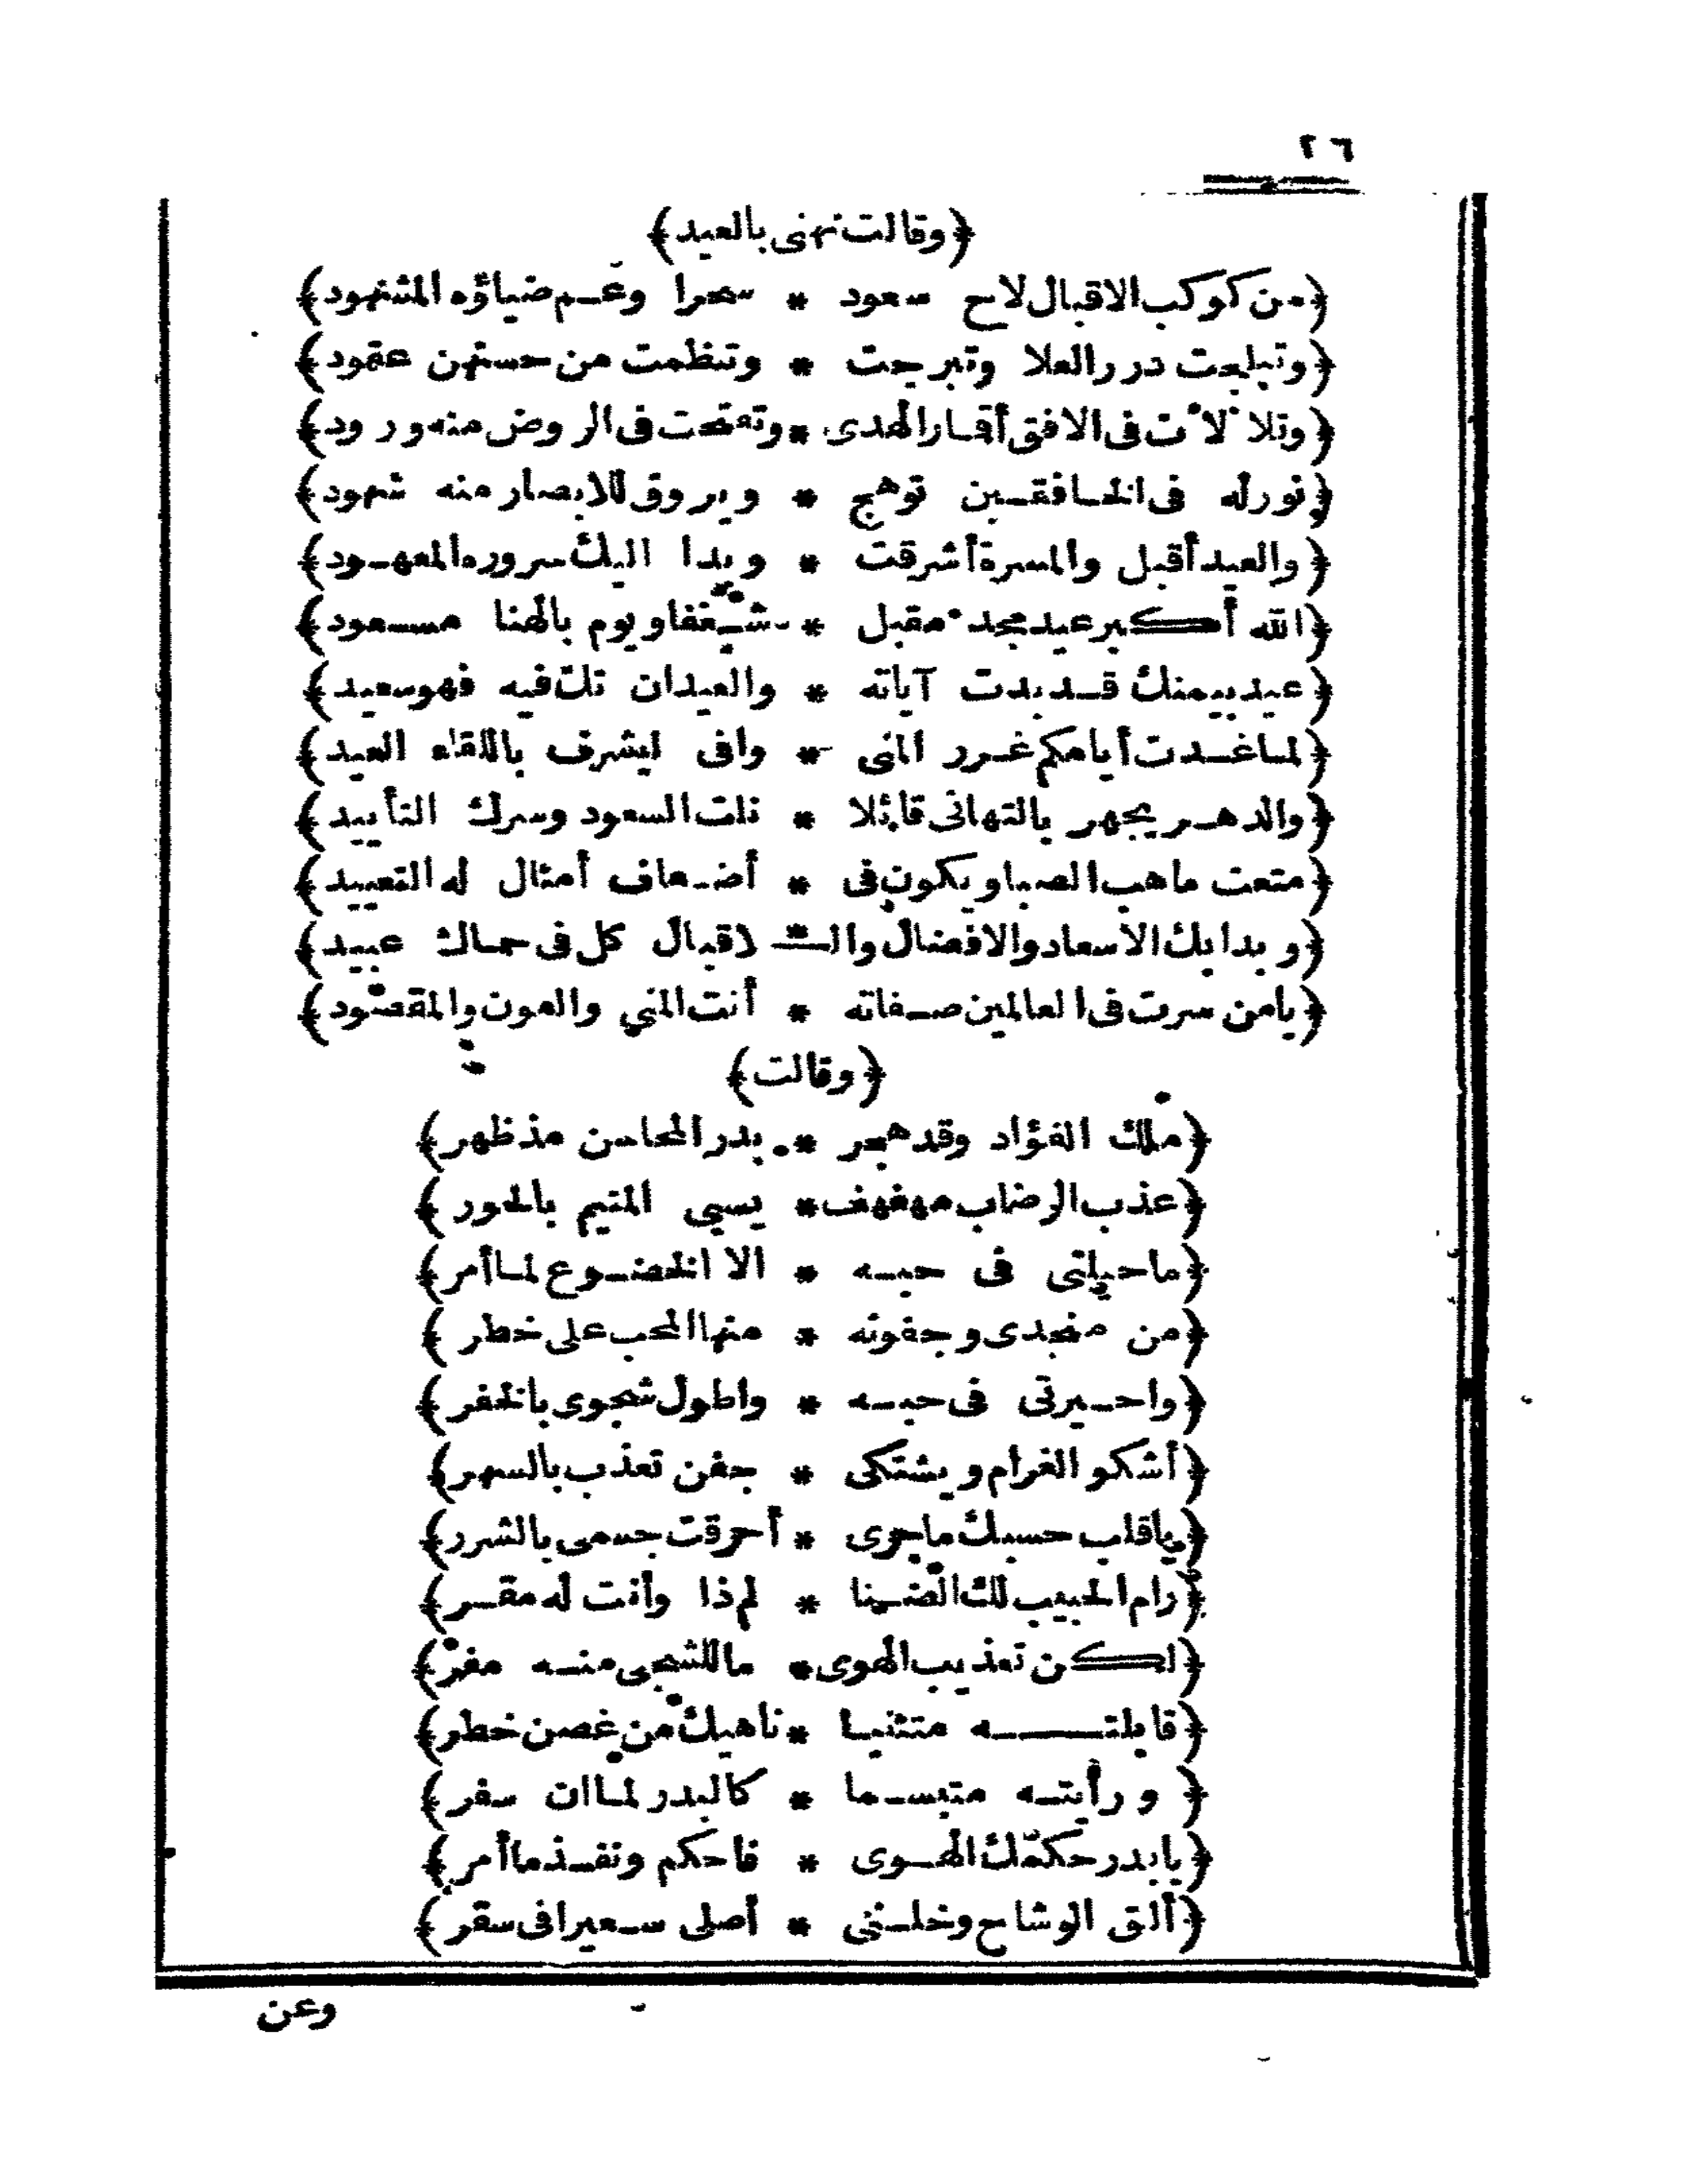 ٢٦
﴿وقالت تهنى بالعيد﴾
﴿من كوكب الاقبال لاح سعود * سحرا وعم ضياؤه المشهود﴾
﴿وتبلجت درر العلا وتبرجت * وتنظمت من حسنهن عقود﴾
﴿وتلألأت فى الافق أقمار الهدى * وتفتحت فى الروض منه ورود﴾
﴿نور له فى الخافقين توهج * ويروق للابصار منه شهود﴾
﴿والعيد أقبل والمسرة أشرقت * وبدا اليك سروره المعهود﴾
﴿الله أكبر عيد مجد مقبل * شغفا ويوم بالهنا مسعود﴾
﴿عيد بيمنك قد بدت آياته * والعيدان تك فيه فهو سعيد﴾
﴿لما غدت أيامكم غرر المنى * وافى ليشرف باللقاء العيد﴾
﴿والدهر يجهر بالتهانى قائلا * نلت السعود وسرك التأييد﴾
﴿متعت ماهب الصبا ويكون فى * أضعاف أمثال له التعييد﴾
﴿وبدا بك الاسعاد والافضال والـ * لاقبال كل فى حماك عبيد﴾
﴿يامن سرت فى العالمين صفاته * أنت المني والعون والمقصود﴾
﴿وقالت﴾
﴿ملك الفؤاد وقد هجر * بدر المحاسن مذ ظهر﴾
﴿عذب الرضاب مهفهف * يسبي المتيم بالحور﴾
﴿ماحيلتى فى حبه * الا الخضوع لما أمر﴾
﴿من منجدى وجفونه * منها المحب على خطر﴾
﴿واحيرتى فى حبه * واطول شجوى بالخفر﴾
﴿أشكو الغرام ويشتكى * جفن تعذب بالسهر﴾
﴿ياقلب حسبك ماجرى * أحرقت جسمى بالشرر﴾
﴿رام الحبيب لك الضنا * لم ذا وأنت له مقر﴾
﴿لكن تعذيب الهوى * ماللشجى منه مفر﴾
﴿قابلته متثنيا * ناهيك من غصن خطر﴾
﴿ورأيته متبسما * كالبدر لما ان سفر﴾
﴿يابدر حكمك الهوى * فاحكم ونفذ ماأمر﴾
﴿ألق الوشاح وخلنى * أصلى سعيرا فى سقر﴾
وعن